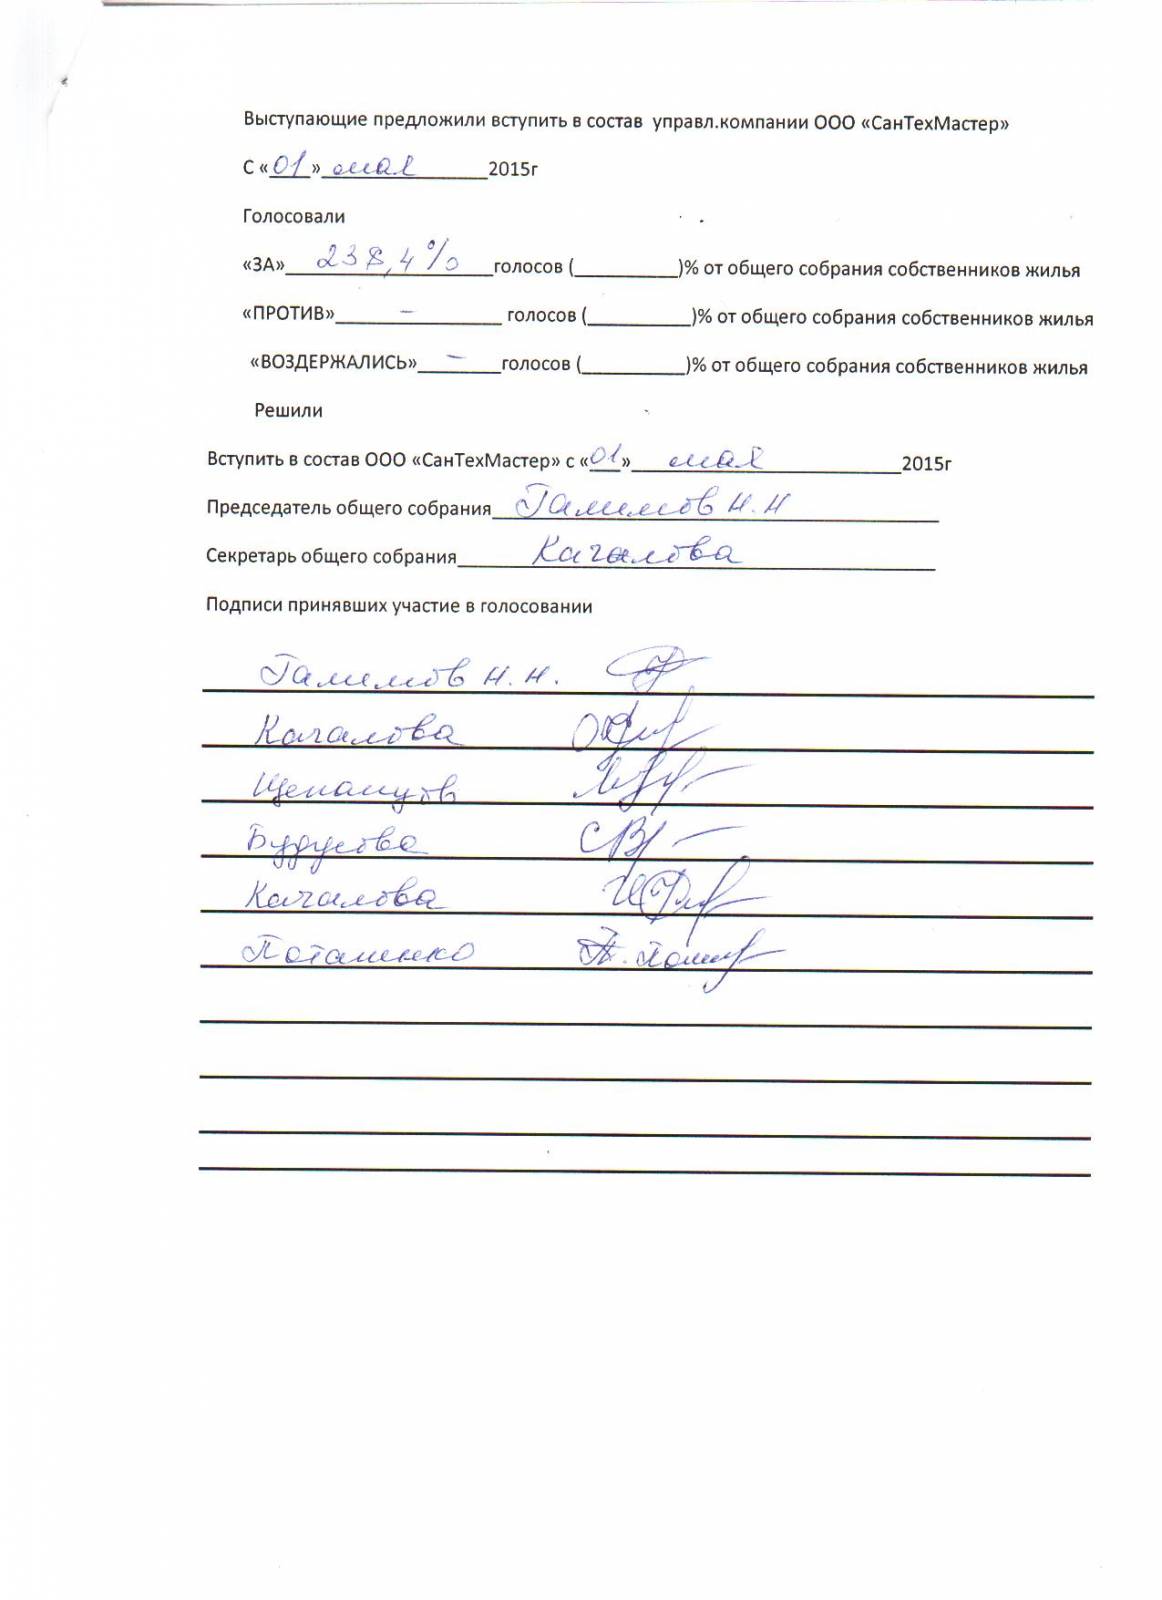 Выступающие предложили вступить в состав управл.компании ООО «СанТехМастер»
С «01» мая 2015г
Голосовали
«ЗА» 238,4% голосов (__________)% от общего собрания собственников жилья
«ПРОТИВ» – голосов (__________)% от общего собрания собственников жилья
«ВОЗДЕРЖАЛИСЬ» – голосов (__________)% от общего собрания собственников жилья
Решили
Вступить в состав ООО «СанТехМастер» с «01» мая 2015г
Председатель общего собрания Галимов Н.Н
Секретарь общего собрания Качалова
Подписи принявших участие в голосовании
Галимов Н.Н.
Качалова
Качалова
Поташенко